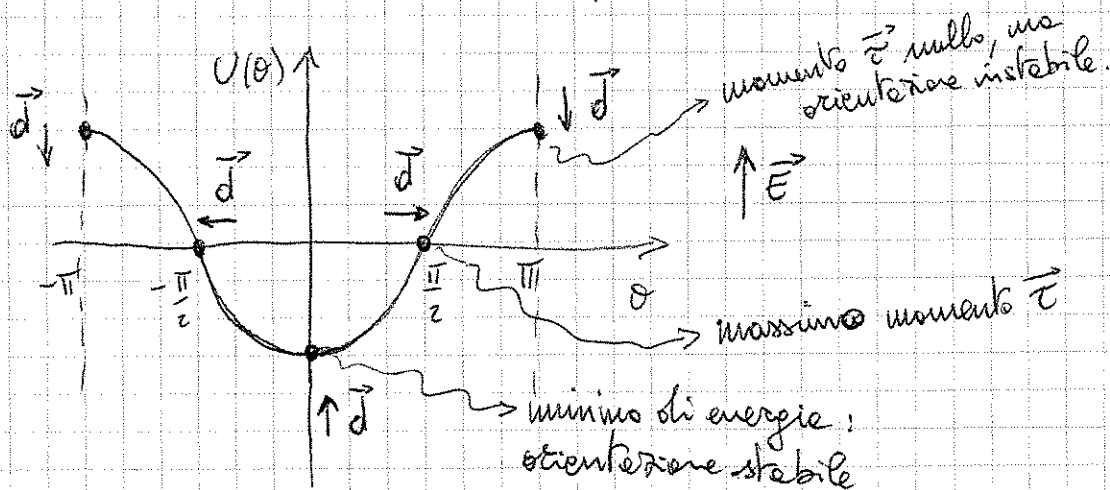 momento τ⃗ nullo, ma
orientazione instabile.
U(θ)
d⃗
d⃗
E⃗
d⃗
d⃗
-π
-π/2
π/2
π
θ
massimo momento τ⃗
d⃗
minimo di energia:
orientazione stabile